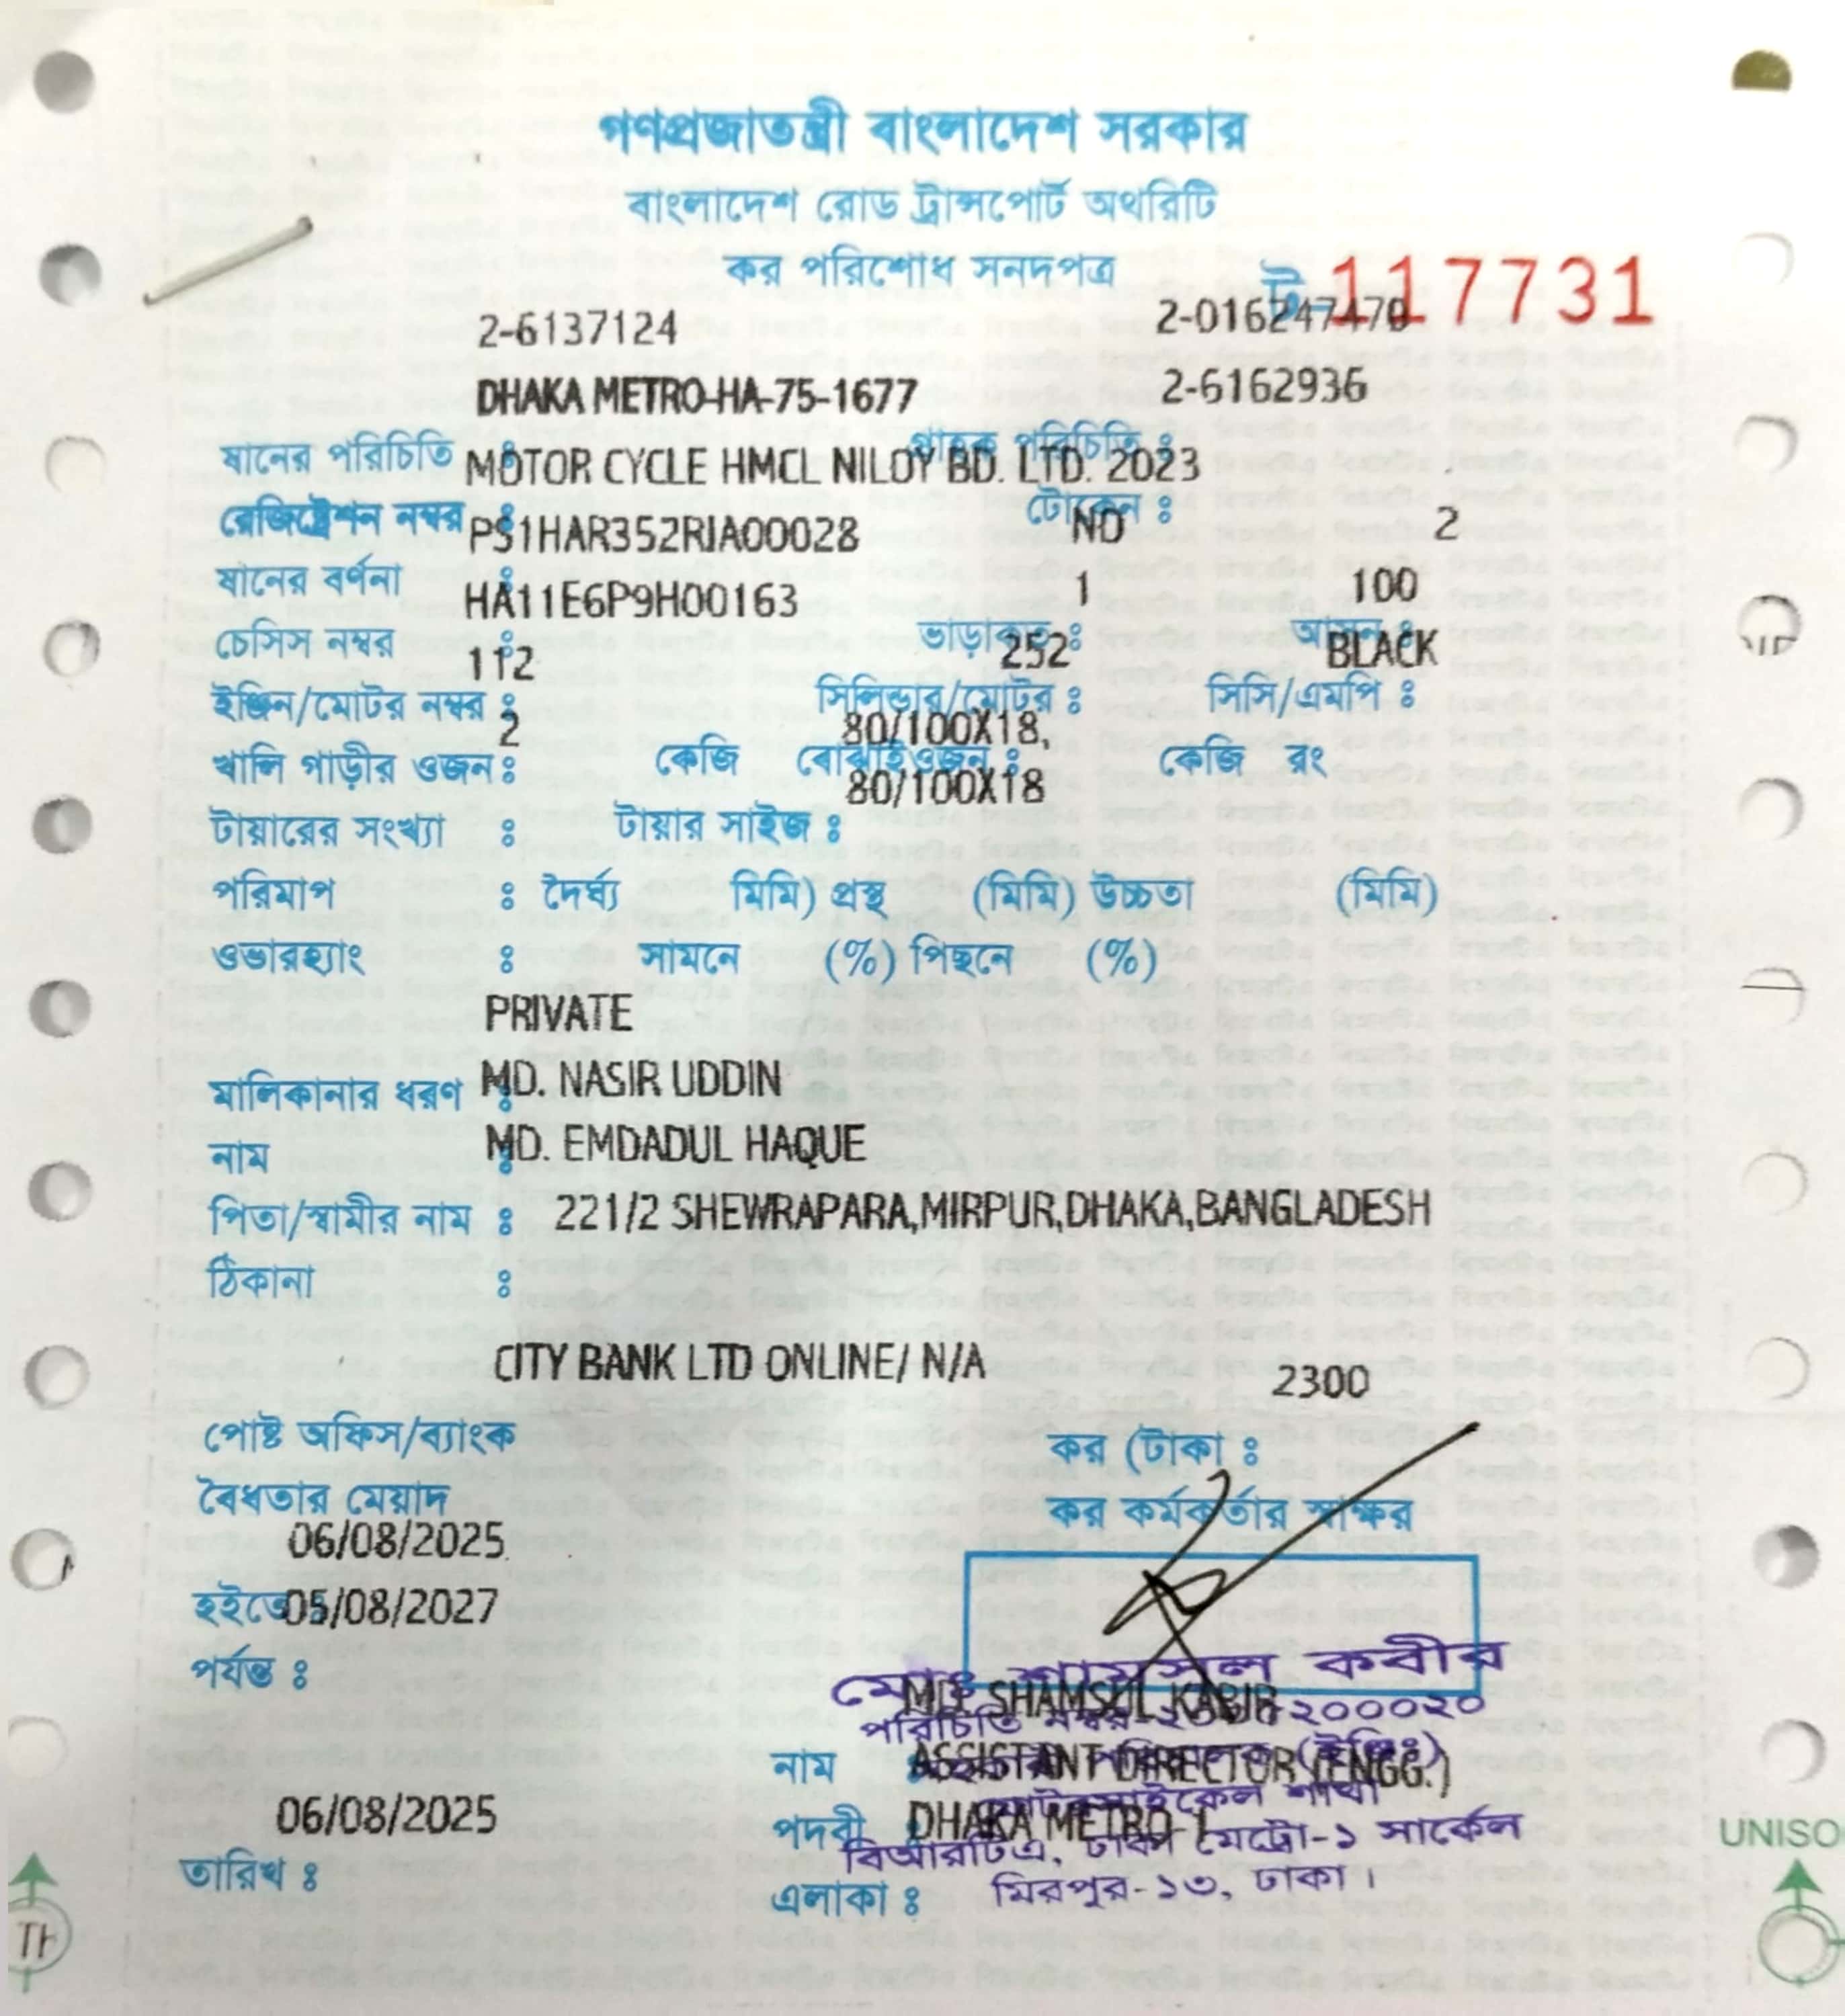 গণপ্রজাতন্ত্রী বাংলাদেশ সরকার
বাংলাদেশ রোড ট্রান্সপোর্ট অথরিটি
কর পরিশোধ সনদপত্র
ট-117731
2-6137124 2-016247470
DHAKA METRO-HA-75-1677 2-6162936
যানের পরিচিতি : গ্রাহক পরিচিতি :
MOTOR CYCLE HMCL NILOY BD. LTD. 2023
রেজিষ্ট্রেশন নম্বর : টোকেন :
PS1HAR352RJA00028 NO 2
যানের বর্ণনা :
HA11E6P9H00163 1 100
চেসিস নম্বর : ভাড়াকৃত : আসন :
112 252 BLACK
ইঞ্জিন/মোটর নম্বর : সিলিন্ডার/মোটর : সিসি/এমপি :
2 80/100X18,
খালি গাড়ীর ওজন : কেজি বোঝাই ওজন : কেজি রং
80/100X18
টায়ারের সংখ্যা : টায়ার সাইজ :
পরিমাপ : দৈর্ঘ্য মিমি) প্রস্থ (মিমি) উচ্চতা (মিমি)
ওভারহ্যাং : সামনে (%) পিছনে (%)
PRIVATE
মালিকানার ধরণ :
MD. NASIR UDDIN
নাম :
MD. EMDADUL HAQUE
পিতা/স্বামীর নাম : 221/2 SHEWRAPARA,MIRPUR,DHAKA,BANGLADESH
ঠিকানা :
CITY BANK LTD ONLINE/ N/A 2300
পোষ্ট অফিস/ব্যাংক কর (টাকা :
বৈধতার মেয়াদ কর কর্মকর্তার স্বাক্ষর
06/08/2025
হইতে 05/08/2027
পর্যন্ত :
মোঃ শামসুল কবীর
MD. SHAMSUL KABIR
পরিচিতি নম্বর-
নাম : ASSISTANT DIRECTOR (ENGG.)
(ইঞ্জিঃ)
মোটরসাইকেল শাখা
06/08/2025 পদবী : DHAKA METRO-1
বিআরটিএ, ঢাকা মেট্রো-১ সার্কেল
তারিখ : এলাকা : মিরপুর-১৩, ঢাকা।
UNISO
TH